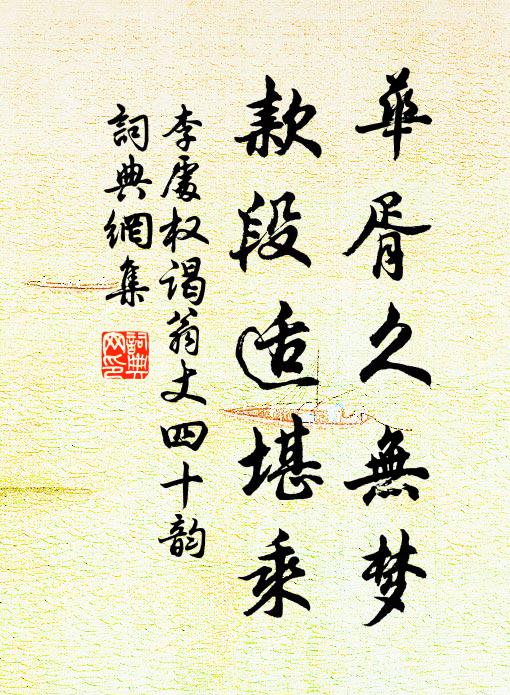 華胥久無梦
款段适堪乘
李處权谒翁丈四十韵
詞典網集
詞典
网印